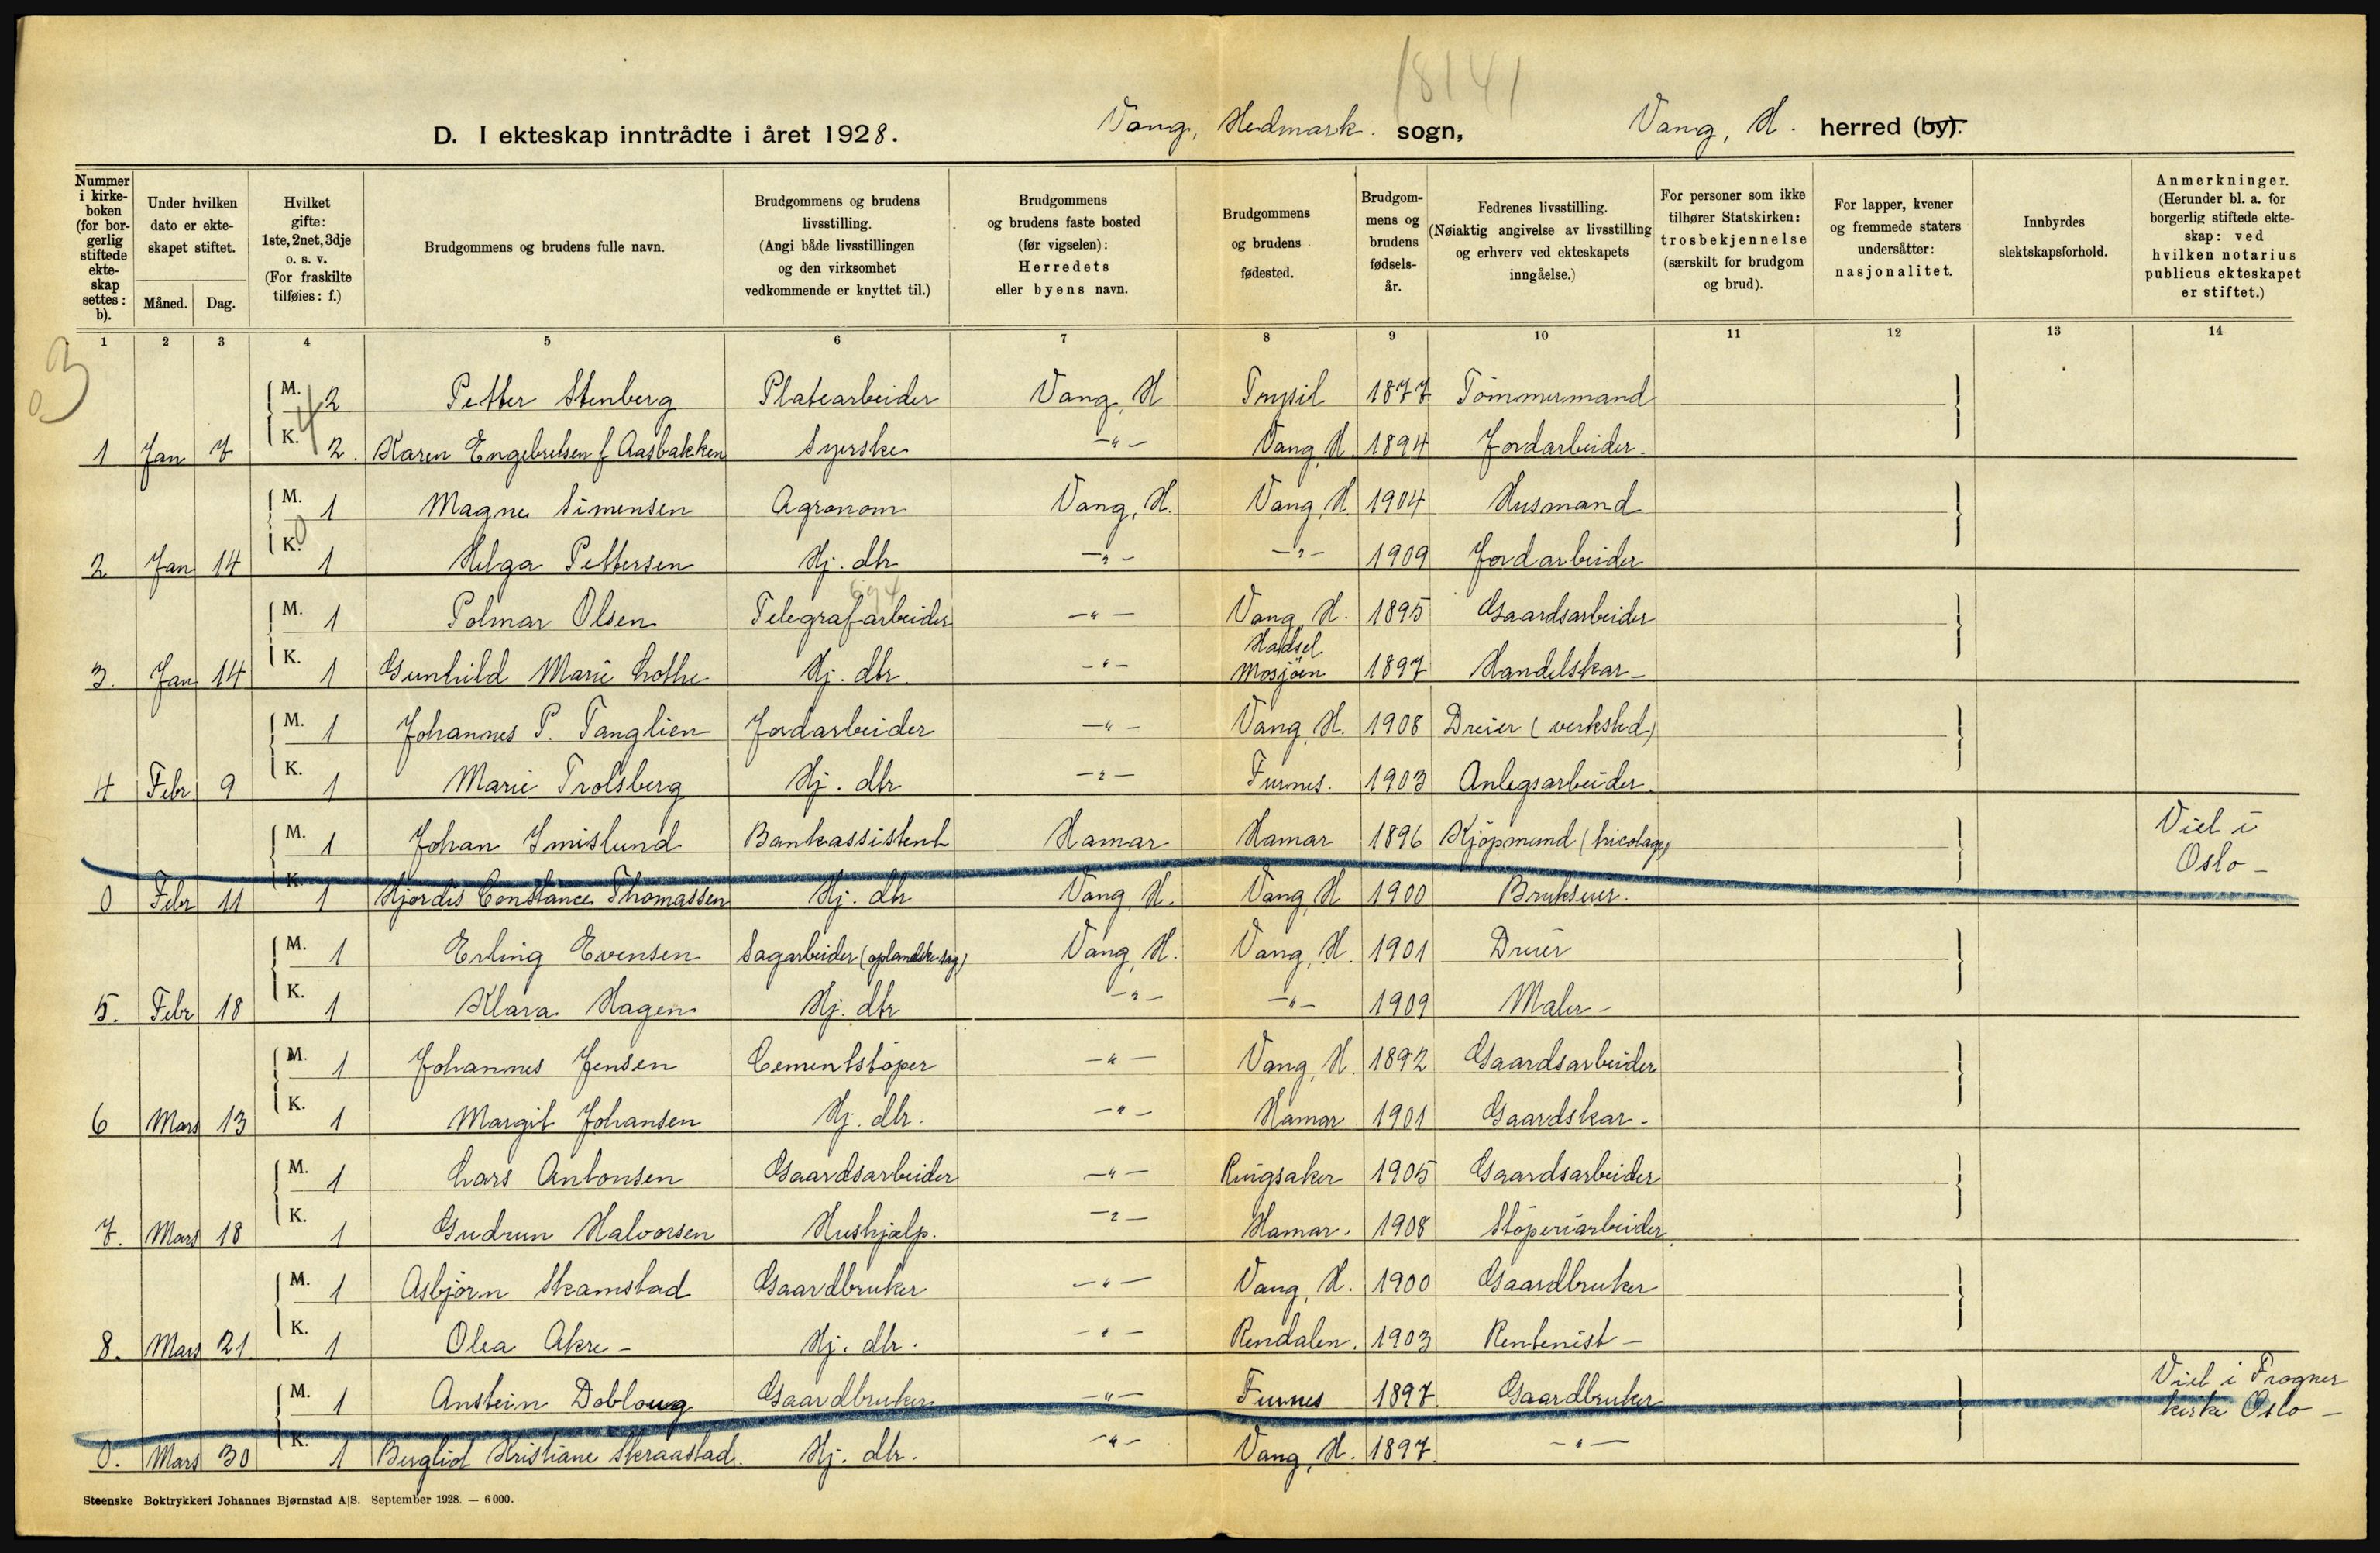 18141
D. I ekteskap inntrådte i året 1928. Vang, Hedmark. sogn, Vang, H. herred (by).
Nummer i kirkeboken (for borgerlig stiftede ekteskap settes: b).
Under hvilken dato er ekteskapet stiftet.
Måned. Dag.
Hvilket gifte: 1ste, 2net, 3dje o. s. v. (For fraskilte tilføies: f.)
Brudgommens og brudens fulle navn.
Brudgommens og brudens livsstilling. (Angi både livsstillingen og den virksomhet vedkommende er knyttet til.)
Brudgommens og brudens faste bosted (før vigselen): Herredets eller byens navn.
Brudgommens og brudens fødested.
Brudgommens og brudens fødselsår.
Fedrenes livsstilling. (Nøiaktig angivelse av livsstilling og erhverv ved ekteskapets inngåelse.)
For personer som ikke tilhører Statskirken: trosbekjennelse (særskilt for brudgom og brud).
For lapper, kvener og fremmede staters undersåtter: nasjonalitet.
Innbyrdes slektskapsforhold.
Anmerkninger. (Herunder bl. a. for borgerlig stiftede ekteskap: ved hvilken notarius publicus ekteskapet er stiftet.)
1 2 3 4 5 6 7 8 9 10 11 12 13 14
M. 2 Petter Stenberg Platearbeider Vang, H Trysil 1877 Tömmermand
1 Jan 7 K. 2. Karen Engebretsen f. Aasbakken Syerske -"- Vang, H. 1894 Jordarbeider.
M. 1 Magne Simensen Agronom Vang, H. Vang, H. 1904 Husmand
2 Jan 14 K. 1 Helga Pettersen Hj. dtr -"- -"- 1909 Jordarbeider
M. 1 Polmar Olsen Telegrafarbeider -"- Vang, H. 1895 Gaardsarbeider
3. Jan 14 K. 1 Gunhild Marie Lothe Hj. dtr. -"- Hadsel Mosjöen 1897 Handelskar-
M. 1 Johannes P. Tanglien Jordarbeider -"- Vang, H. 1908 Dreier (verksted)
4 Febr 9 K. 1 Marie Trolsberg Hj. dtr -"- Furnes. 1903 Anlegsarbeider.
M. 1 Johan Smislund Bankassistent Hamar Hamar 1896 Kjöpmand (tricotage) Viet i Oslo-
0 Febr 11 K. 1 Hjördis Constance Thomassen Hj. dtr Vang, H. Vang, H 1900 Brukseier.
M. 1 Erling Evensen Sagarbeider (oplandske sag) Vang, H. Vang, H. 1901 Dreier
5. Febr 18 K. 1 Klara Hagen Hj. dtr -"- -"- 1909 Maler-
M. 1 Johannes Jensen Cementstöper -"- Vang, H. 1892 Gaardsarbeider
6 Mars 13 K. 1 Margit Johansen Hj. dtr. -"- Hamar 1901 Gaardskar-
M. 1 Lars Antonsen Gaardsarbeider -"- Ringsaker 1905 Gaardsarbeider
7. Mars 18 K. 1 Gudrun Halvorsen Hushjælp. -"- Hamar. 1908 Stöperiarbeider.
M. 1 Asbjörn Skamstad Gaardbruker -"- Vang, H. 1900 Gaardbruker
8. Mars 21. K. 1 Olea Akre- Hj. dtr. -"- Rendalen. 1903 Rentenist-
M. 1 Anstein Dobloug Gaardbruker -"- Furnes 1897 Gaardbruker Viet i Frogner kirke Oslo-
0. Mars 30 K. 1 Bergliot Kristiane Skraastad. Hj. dtr. -"- Vang, H. 1897. -"-
Steenske Boktrykkeri Johannes Bjørnstad A|S. September 1928. — 6000.